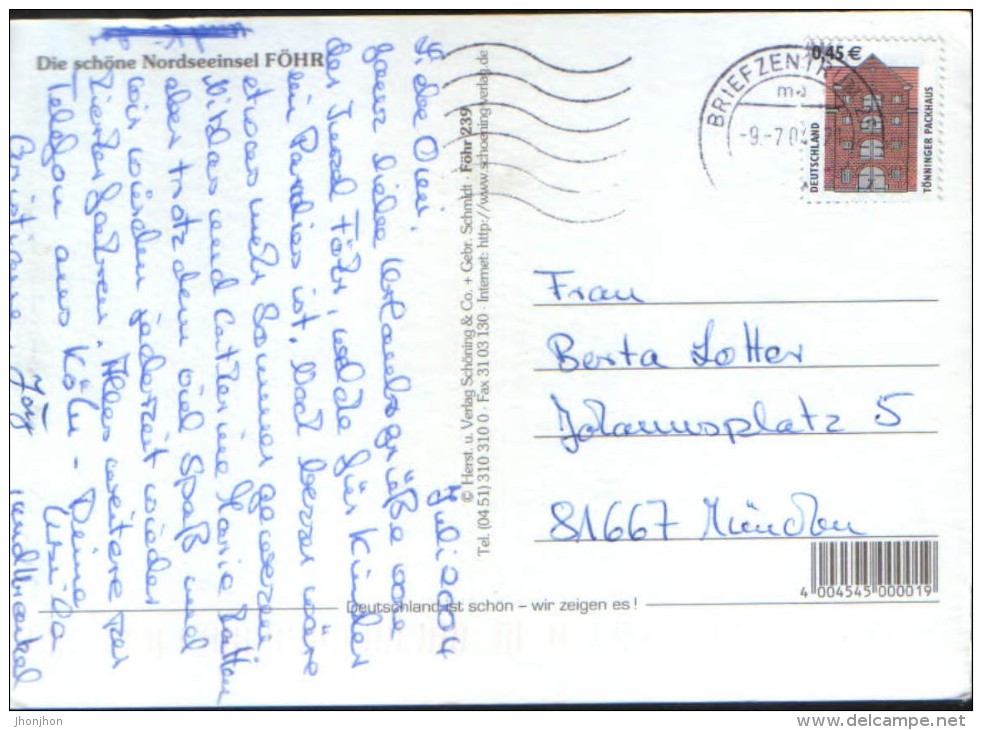 Die schöne Nordseeinsel FÖHR
Juli 2004
Liebe Omi,
ganz liebe Urlaubsgrüße von
der Insel Föhr, welche für Kinder
ein Paradies ist. Viel besser wäre
etwas mehr Sonne gewesen.
Niklas und Catharina Marie hatten
aber trotzdem viel Spaß und
wir würden jederzeit wieder
hierher fahren. Alles weitere per
Telefon aus Köln - Deine
Ursula
Jörg
© Herst. u. Verlag Schöning & Co. + Gebr. Schmidt · Föhr 239
Tel. (04 51) 310 310 0 · Fax 31 03 130 · Internet: http://www.schoening-verlag.de
BRIEFZENTRUM
-9.-7.04
0,45 €
DEUTSCHLAND
TÖNNINGER PACKHAUS
Frau
Berta Lotter
Johannisplatz 5
81667 München
4 004545 000019
Deutschland ist schön – wir zeigen es!
Jhonjhon
www.delcampe.net